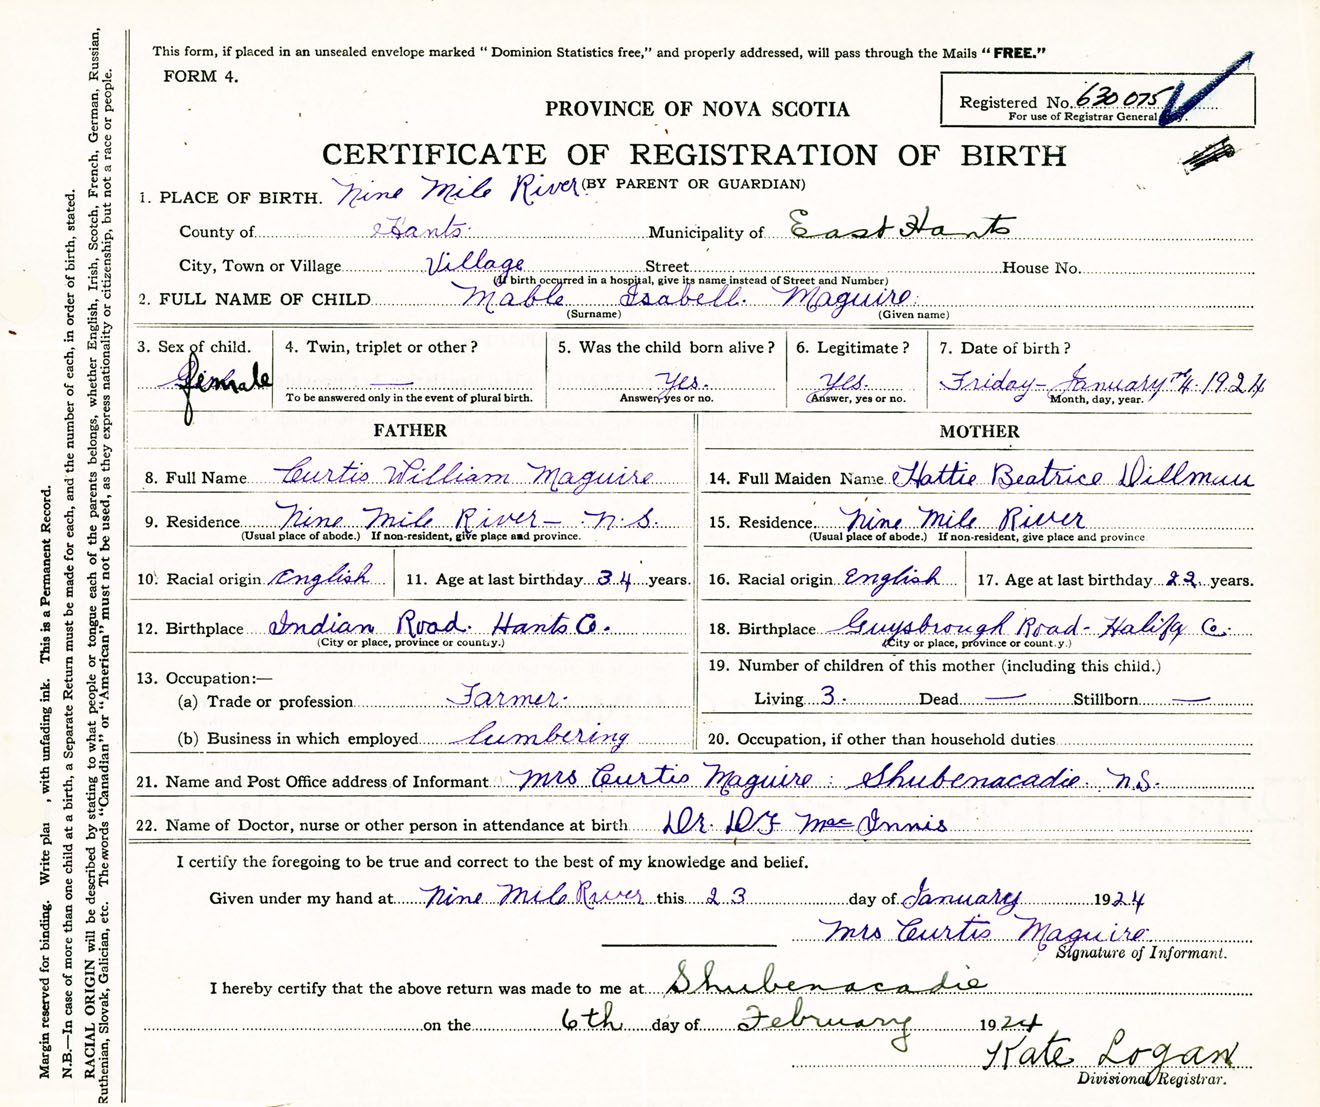 This form, if placed in an unsealed envelope marked "Dominion Statistics free," and properly addressed, will pass through the Mails "FREE."
FORM 4.
Registered No. 630075
For use of Registrar General
PROVINCE OF NOVA SCOTIA
CERTIFICATE OF REGISTRATION OF BIRTH
(BY PARENT OR GUARDIAN)
1. PLACE OF BIRTH. Nine Mile River
County of Hants Municipality of East Hants
City, Town or Village Village Street House No.
(If birth occurred in a hospital, give its name instead of Street and Number)
2. FULL NAME OF CHILD Mable Isabell Maguire
(Surname) (Given name)
3. Sex of child. female
4. Twin, triplet or other? —
To be answered only in the event of plural birth.
5. Was the child born alive? Yes.
Answer, yes or no.
6. Legitimate? Yes.
Answer, yes or no.
7. Date of birth? Friday - January 1924
Month, day, year.
FATHER
8. Full Name Curtis William Maguire
9. Residence Nine Mile River - N.S.
(Usual place of abode.) If non-resident, give place and province.
10. Racial origin English 11. Age at last birthday 34 years.
12. Birthplace Indian Road. Hants Co.
(City or place, province or county.)
13. Occupation:—
(a) Trade or profession Farmer
(b) Business in which employed lumbering
MOTHER
14. Full Maiden Name Hattie Beatrice Dillman
15. Residence. Nine Mile River
(Usual place of abode.) If non-resident, give place and province
16. Racial origin English 17. Age at last birthday 22 years.
18. Birthplace Guysbrough Road - Halifx Co.
(City or place, province or county.)
19. Number of children of this mother (including this child.)
Living 3. Dead — Stillborn —
20. Occupation, if other than household duties
21. Name and Post Office address of Informant Mrs Curtis Maguire : Shubenacadie N.S.
22. Name of Doctor, nurse or other person in attendance at birth Dr. D F MacInnis
I certify the foregoing to be true and correct to the best of my knowledge and belief.
Given under my hand at Nine Mile River this 23 day of January 1924
Mrs Curtis Maguire
Signature of Informant.
I hereby certify that the above return was made to me at Shubenacadie
on the 6th day of February 1924
Kate Logan
Divisional Registrar.
Margin reserved for binding. Write plai , with unfading ink. This is a Permanent Record.
N.B.—In case of more than one child at a birth, a Separate Return must be made for each, and the number of each, in order of birth, stated.
RACIAL ORIGIN will be described by stating to what people or tongue each of the parents belongs, whether English, Irish, Scotch, French, German, Russian,
Ruthenian, Slovak, Galician, etc. The words "Canadian" or "American" must not be used, as they express nationality or citizenship, but not a race or people.